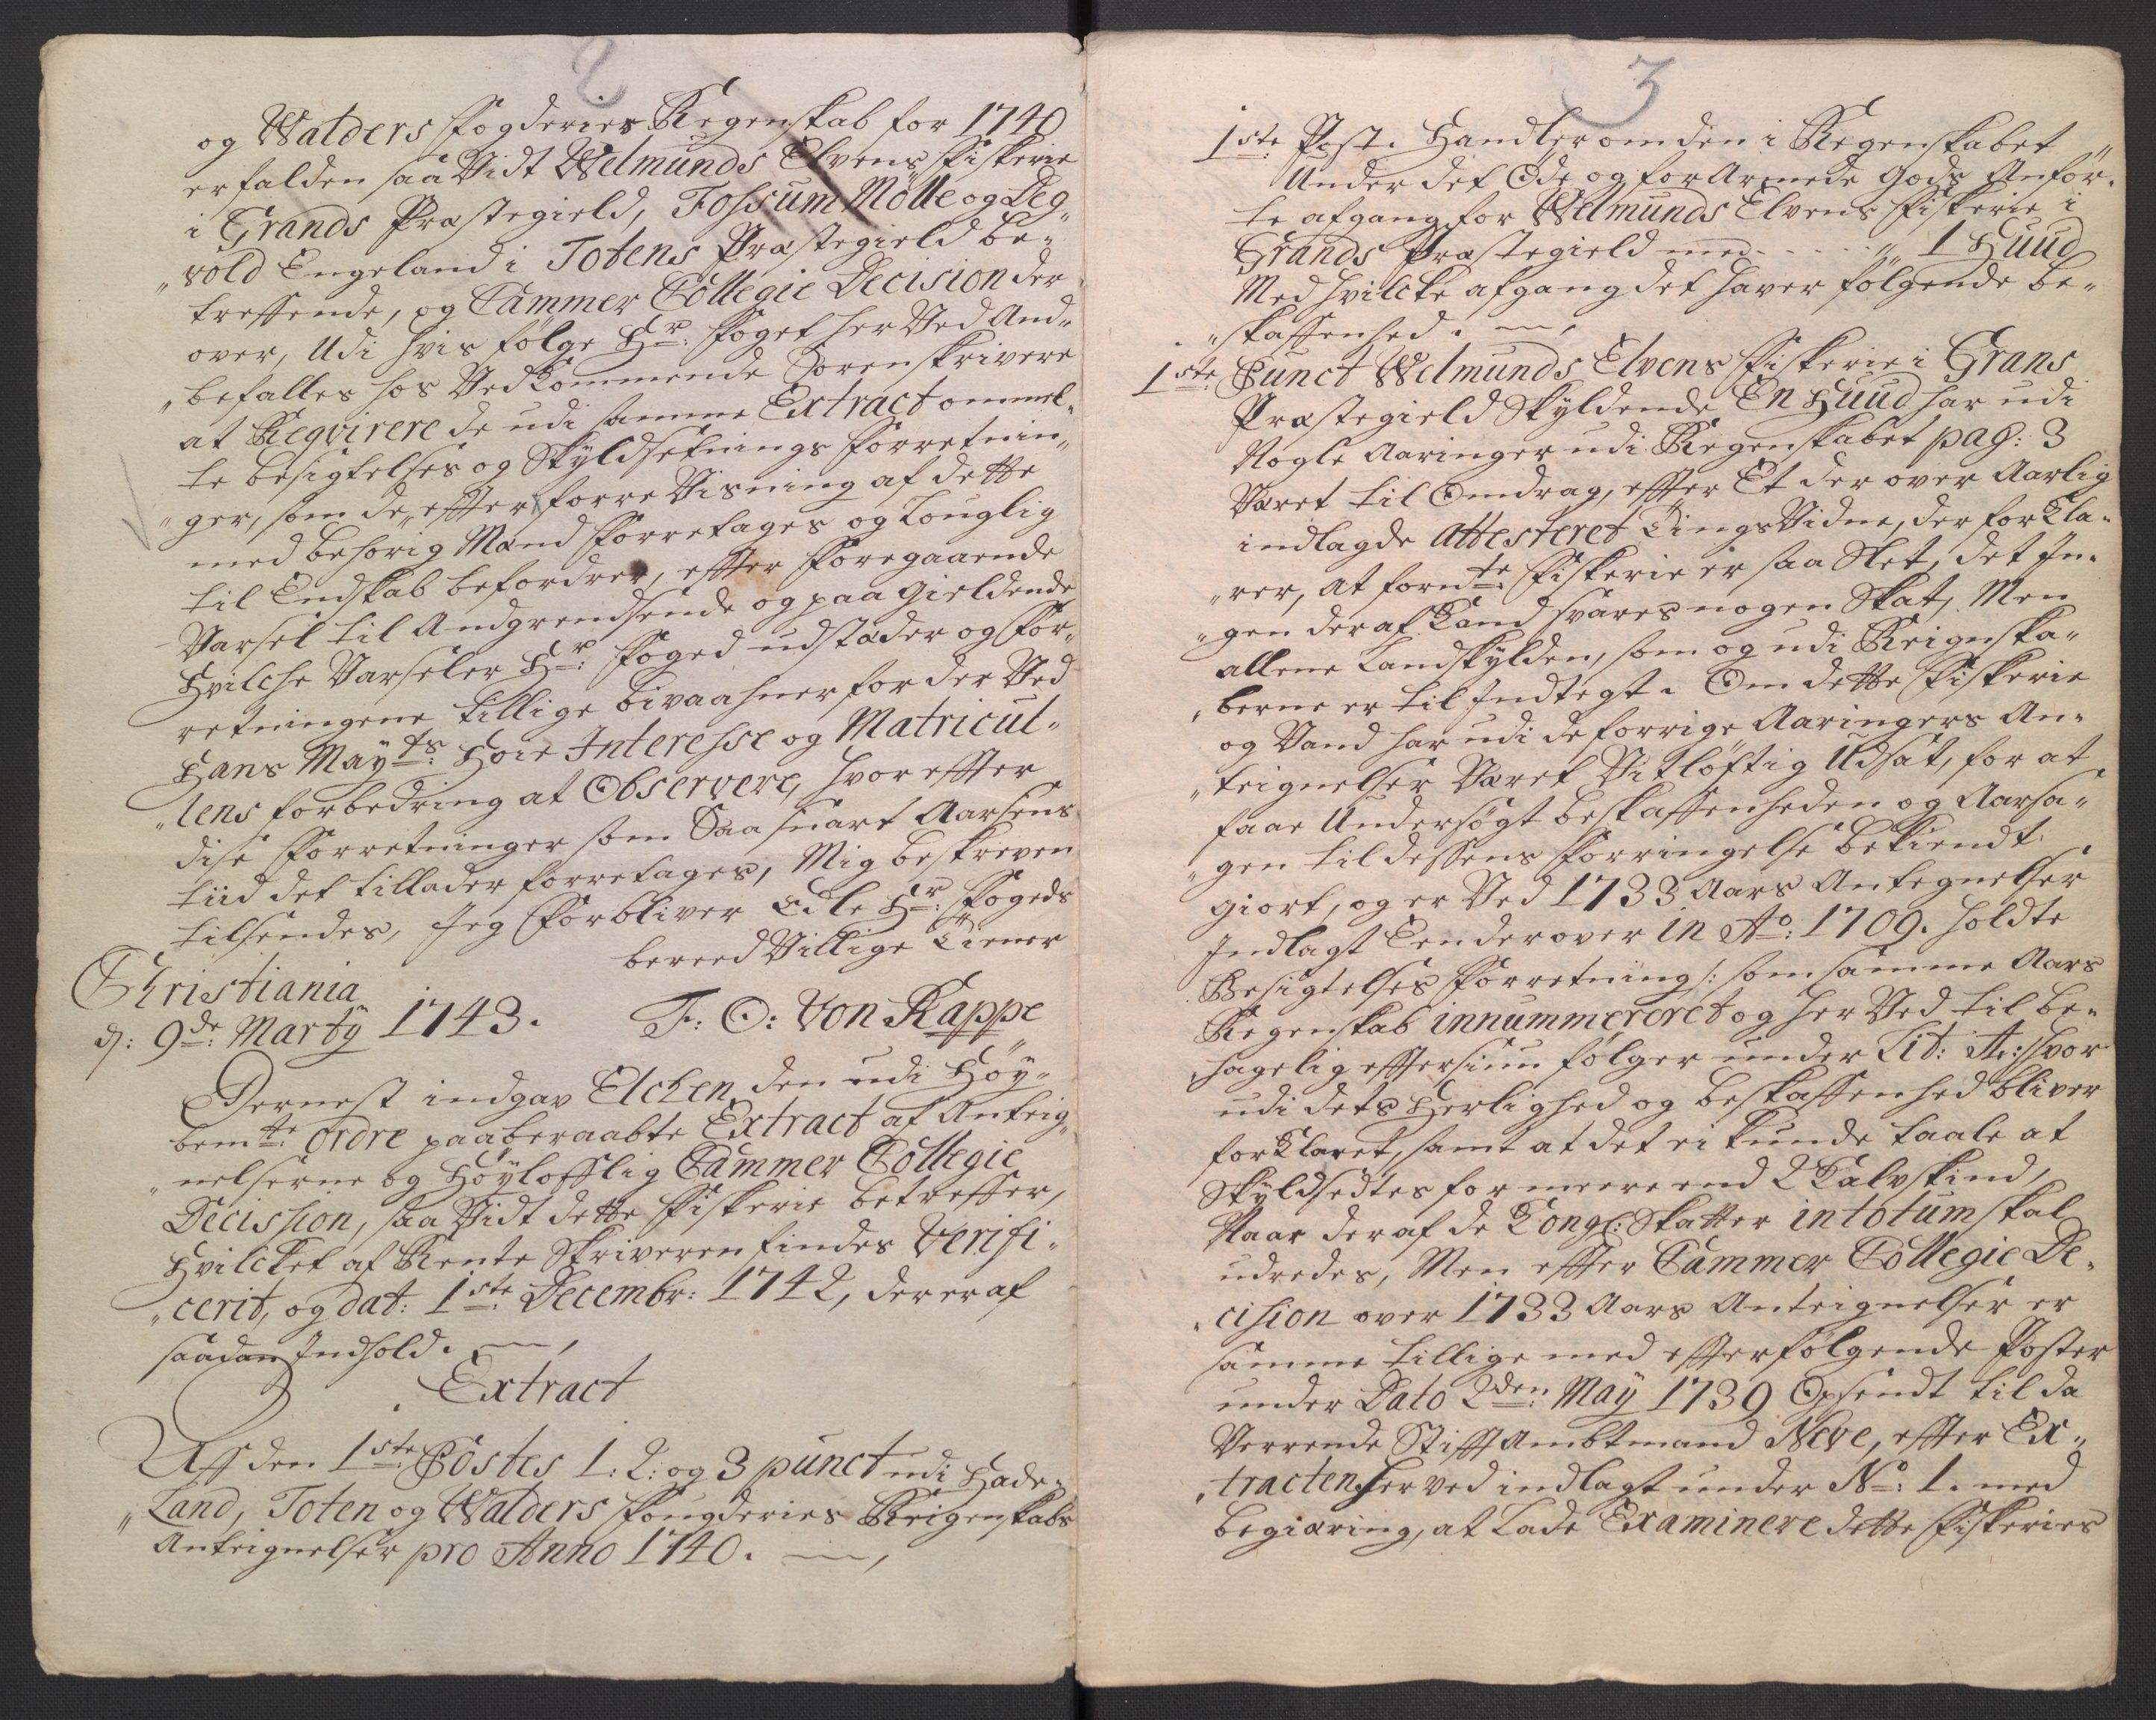 2
og Walders Fogderies Regenskab for 1740
er falden saa Vidt Welmunds Elvens Fiskerie
i Grands Præstegield, Fossum Mölle og Deg„
„vold Engeland i Totens Præstegield be„
treffende, og Cammer Collegie Decision der
over, Udi hvis følge Hr: Foget her Ved And„
„befalles hos Vedkommende Sorenskrivere
at Reqvirere de udi samme Extract ommel„
te besigtelses og Skyldsetnings Forretnin„
„ger, som de, effter forre Visning af dette
med behørig Mænd Forretages og Louglig
til Endskab befordrer, effter Foregaaende
Varsel til Andgrendsende og paa gieldende
Hvilche Varseler Hr: Foged udstæder og For„
retningene tillige bivaahner for der Ved
Hans Mayts: Høie Interesse og Matricul„
„lens forbedring at Observere, hvor effter
dise Forretninger som Saa snart Aarsens
tiid det tillader forretages, Mig beskreven
tilsendes, Jeg Forbliver Edle Hr: Fogeds
bereed Villige Tiener
Christiania
d: 9de: Marty 1743. F: O: Von Kappe
Dernest indgav Elchen den udi Høy„
bemte: Ordre paaberaabte Extract af Anteig„
„nelserne og Høyloflig Cammer Collegie
Decission, saa Vidt dette Fiskerie betreffer,
Hvilcket af Rente Skriveren findes Verifi„
„cerit, og dat: 1ste: Decembr: 1742, der er af
saadan Indhold.
Extract
Aff den 1ste: Postes 1: 2: og 3 punct udi Hade„
„Land, Toten og Walders Fougderies Reigenskabs
Anteignelser pro Anno 1740.
3
1ste: Post. Handler om den i Regenskabet
Under det Øde og for Armede Gods Anför„
te afgang for Welmunds Elvens Fiskerie i
Grands Præstegield med - - - - „ 1 Huud
Med hvilcke afgang det haver følgende be„
„skaffenhed.
1ste: Punct Welmunds Elvens Fiskerie i Grans
Præstegield Skyldende En Huud har udi
Nogle Aaringer udi Regenskabet pag: 3
Været til Omdrag, effter Et der over Aarlig
indlagde Attesteret Tings Vidne, der for Kla„
„rer, at fornte: Fiskerie er saa Slet, det In„
„gen deraf Kand svares nogen Skat, Men
allene Landskylden, som og udi Reignska„
„berne er til Indtegt. Om dette Fiskerie
og Vand har udi de forrige Aaringers An„
„teignelser Været Vitløftig Udsat, for at
faae Undersøgt beskaffenheden og Aarsa„
„gen til dessens Forringelse bekiendt
giort, og er Ved 1733 Aars Antegnelser
Indlagt Een der over in Ao: 1709. holdte
Besigtelses Forretning /: som samme Aars
Regenskab innummereret og her Ved til be„
hagelig effterSiun følger under Lit: A: hvor
udi dets Herlighed og beskaffenhed bliver
forklaret, samt at det ei kunde taale at
Skyldsedtes for meere end 2 Kalvskind,
Naar deraf de Kongl: Skatter in totum skal
udredes, Men effter Cammer Collegie De„
„cision over 1733 Aars Anteignelser er
samme tillige med effterfølgende Poster
under Dato 2den: May 1739 Opsendt til da
Værende Stifftambtmand Neve, effter Ex„
„tracten her ved indlagt under No: 1. med
begiæring, at Lade Examinere dette Fiskeries